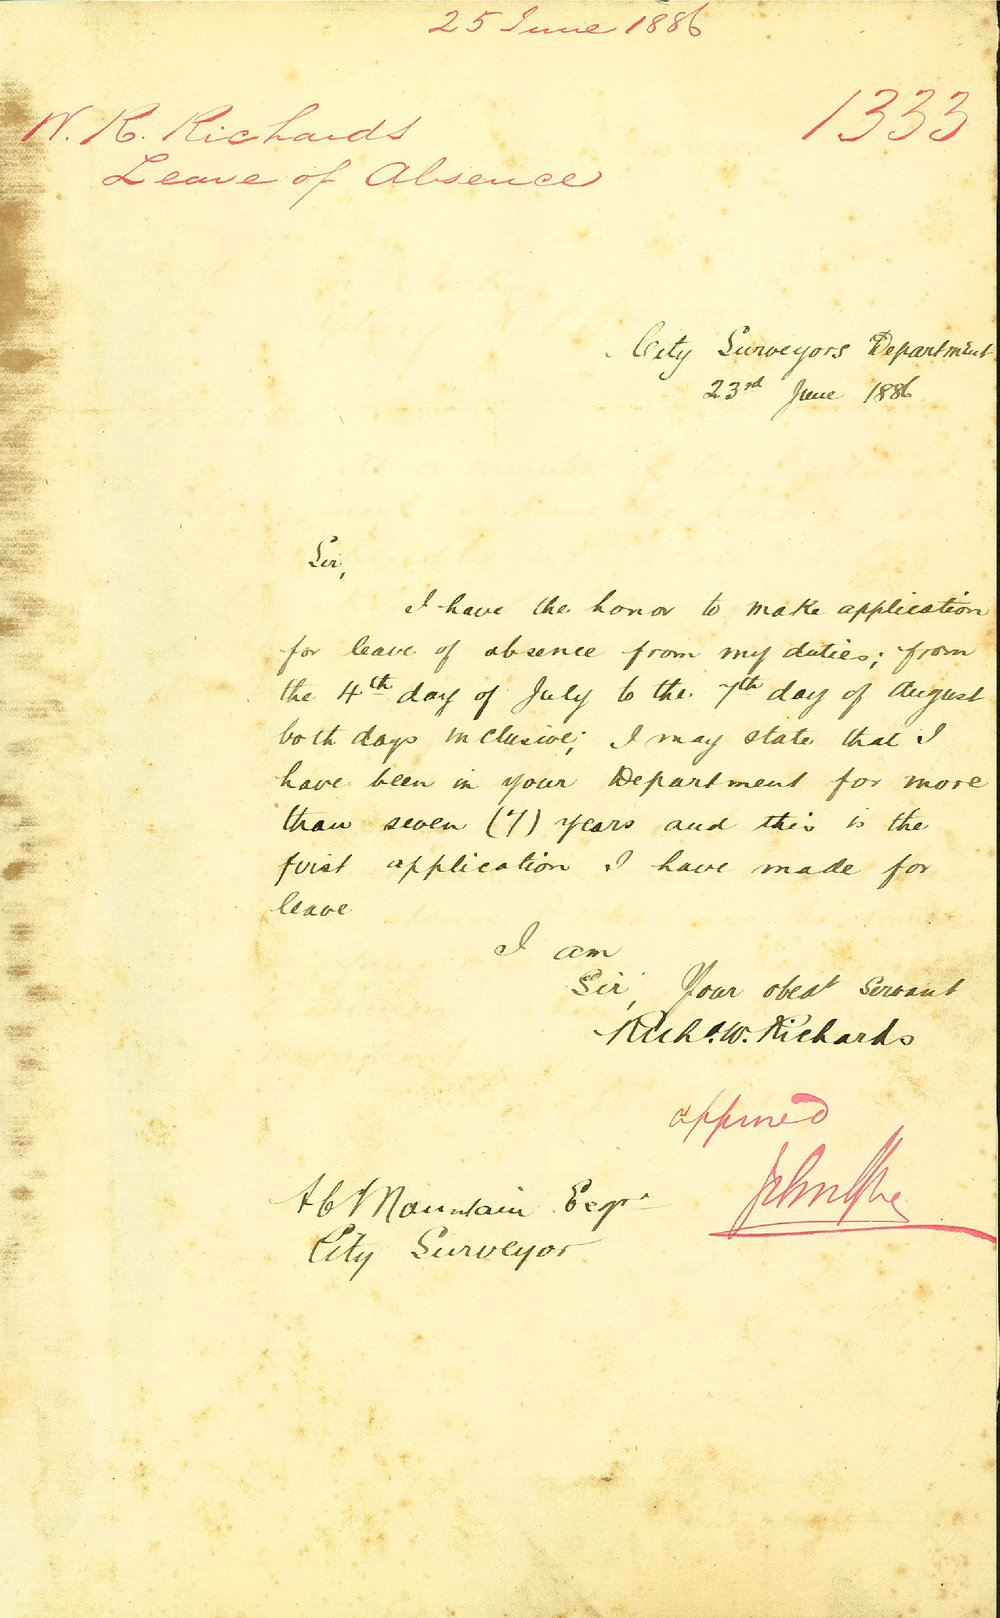 25 June 1886
W. R. Richards
1333
Leave of Absence
City Surveyors Department
23rd June 1886
Sir,
I have the honor to make application
for leave of absence from my duties; from
the 4th day of July to the 7th day of August
both days inclusive; I may state that I
have been in your Department for more
than seven (7) years and this is the
first application I have made for
leave
I am
Sir, Your obedt Servant
Richd. W. Richards
approved
A C Mountain Esqr
City Surveyor